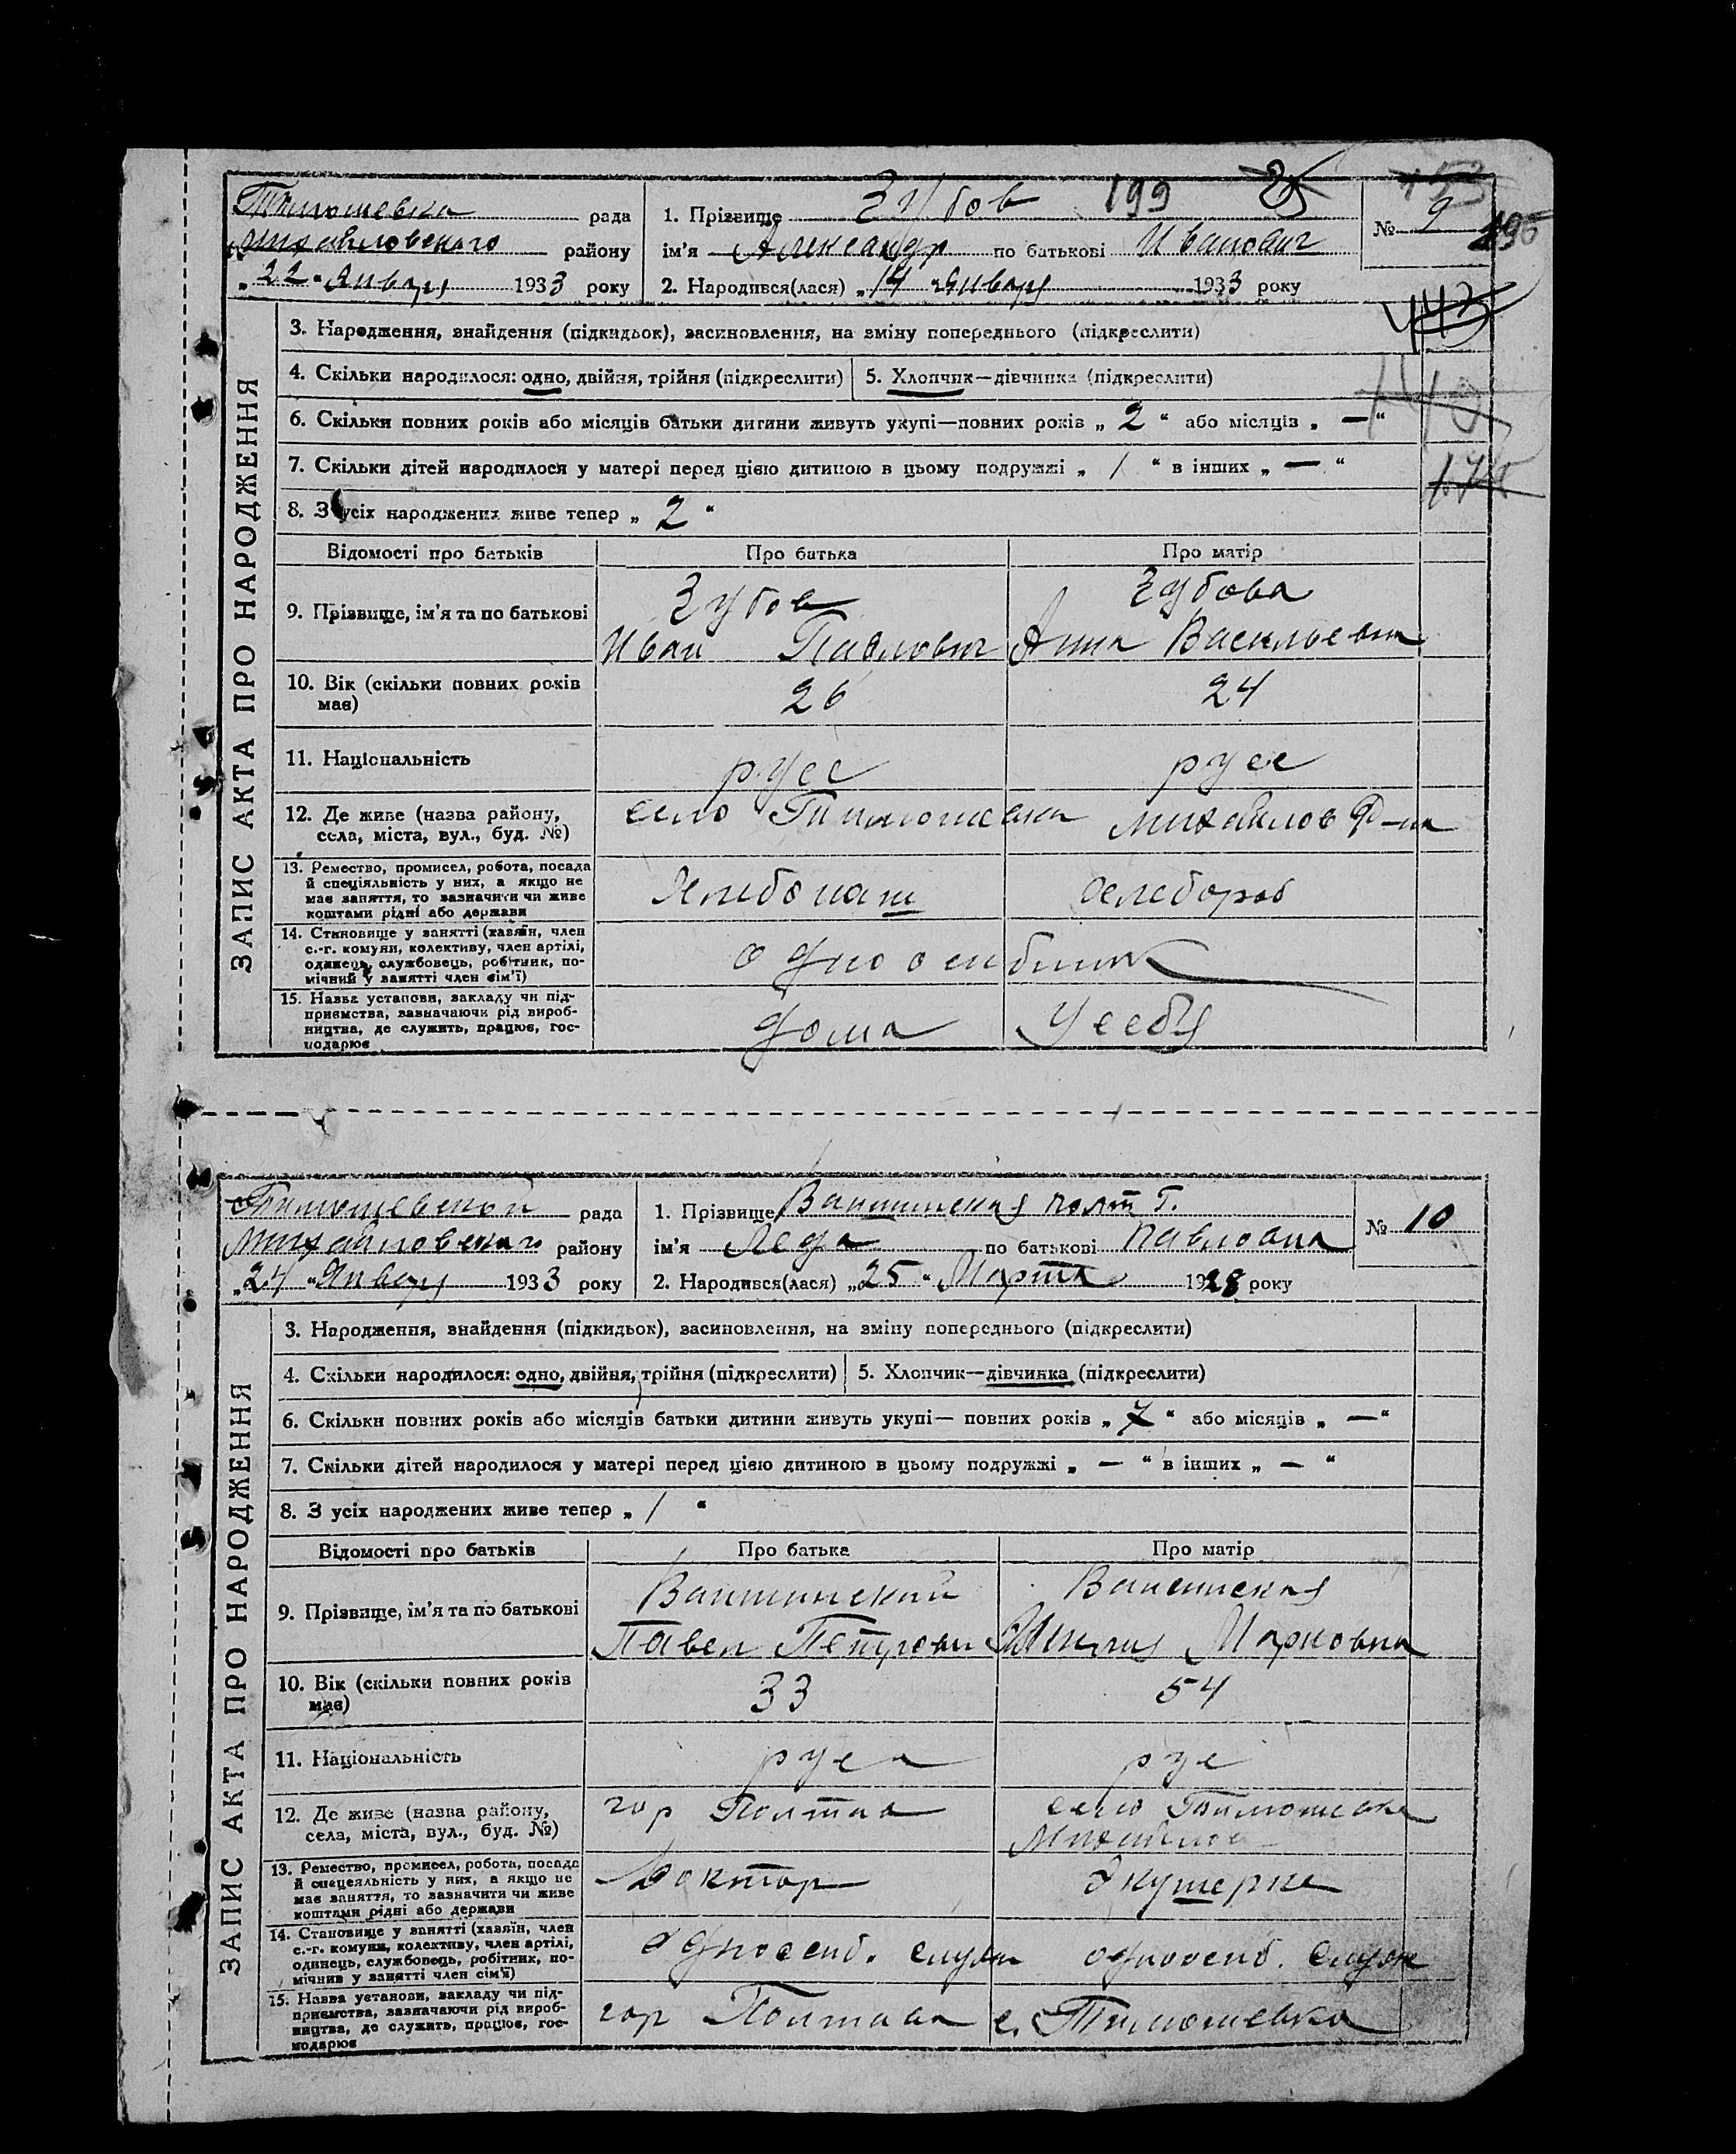 Тимошевка рада
Михайловского району
„22“ Январу 1933 року
1. Прізвище Зубов 199
ім'я Александр по батькові Иванович
2. Народився(лася) „14“ Январу 1933 року
№ 9
195
143
175
ЗАПИС АКТА ПРО НАРОДЖЕННЯ
3. Народження, знайдення (підкидьок), засиновлення, на зміну попереднього (підкреслити)
4. Скільки народилося: одно, двійня, трійня (підкреслити) 5. Хлопчик—дівчинка (підкреслити)
6. Скільки повних років або місяців батьки дитини живуть укупі—повних років „ 2 “ або місяців „ — “
7. Скільки дітей народилося у матері перед цією дитиною в цьому подружжі „ / “ в інших „ — “
8. З усіх народжених живе тепер „ 2 “
Відомості про батьків Про батька Про матір
9. Прізвище, ім'я та по батькові Зубов Зубова
Иван Павлович Анна Васильевна
10. Вік (скільки повних років має) 26 24
11. Національність русс русс
12. Де живе (назва району, села, міста, вул., буд. №) село Тимошевка Михайлов Р-на
13. Ремество, промисел, робота, посада
й спеціяльність у них, а якщо не
має заняття, то зазначити чи живе
коштами рідні або держави
Хлебопаш Хлебороб
14. Становище у занятті (хазяїн, член
с.-г. комуни, колективу, член артілі,
одинець, службовець, робітник, по-
мічний у занятті член сім'ї)
одноосибник
15. Назва установи, закладу чи під-
приємства, зазначаючи рід вироб-
ництва, де служить, працює, гос-
подарює
дома у себу
Тимошевской рада
Михайловского району
„24“ Январу 1933 року
1. Прізвище Ваншинская полт Г.
ім'я Леда по батькові Павловна
2. Народився(лася) „25“ Марта 1928 року
№ 10
ЗАПИС АКТА ПРО НАРОДЖЕННЯ
3. Народження, знайдення (підкидьок), засиновлення, на зміну попереднього (підкреслити)
4. Скільки народилося: одно, двійня, трійня (підкреслити) 5. Хлопчик—дівчинка (підкреслити)
6. Скільки повних років або місяців батьки дитини живуть укупі— повних років „ 7 “ або місяців „ — “
7. Скільки дітей народилося у матері перед цією дитиною в цьому подружжі „ — “ в інших „ — “
8. З усіх народжених живе тепер „ / “
Відомості про батьків Про батька Про матір
9. Прізвище, ім'я та по батькові Ваншинский Ваншинская
Павел Петрович Марковна
10. Вік (скільки повних років має) 33 54
11. Національність русс рус
12. Де живе (назва району, села, міста, вул., буд. №) гор Полтва село Тимошевка
Михайлов
13. Ремество, промисел, робота, посада
й спецеяльність у них, а якщо не
має заняття, то зазначити чи живе
коштами рідні або держави
Доктор Экушерка
14. Становище у занятті (хазяїн, член
с.-г. комуни, колективу, член артілі,
одинець, службовець, робітник, по-
мічних у занятті член сім'ї)
одноосиб. служ одноосиб. служ
15. Назва установи, закладу чи під-
приємства, зазначаючи рід вироб-
ництва, де служить, працює, гос-
подарює
гор Полтава с. Тимошевка